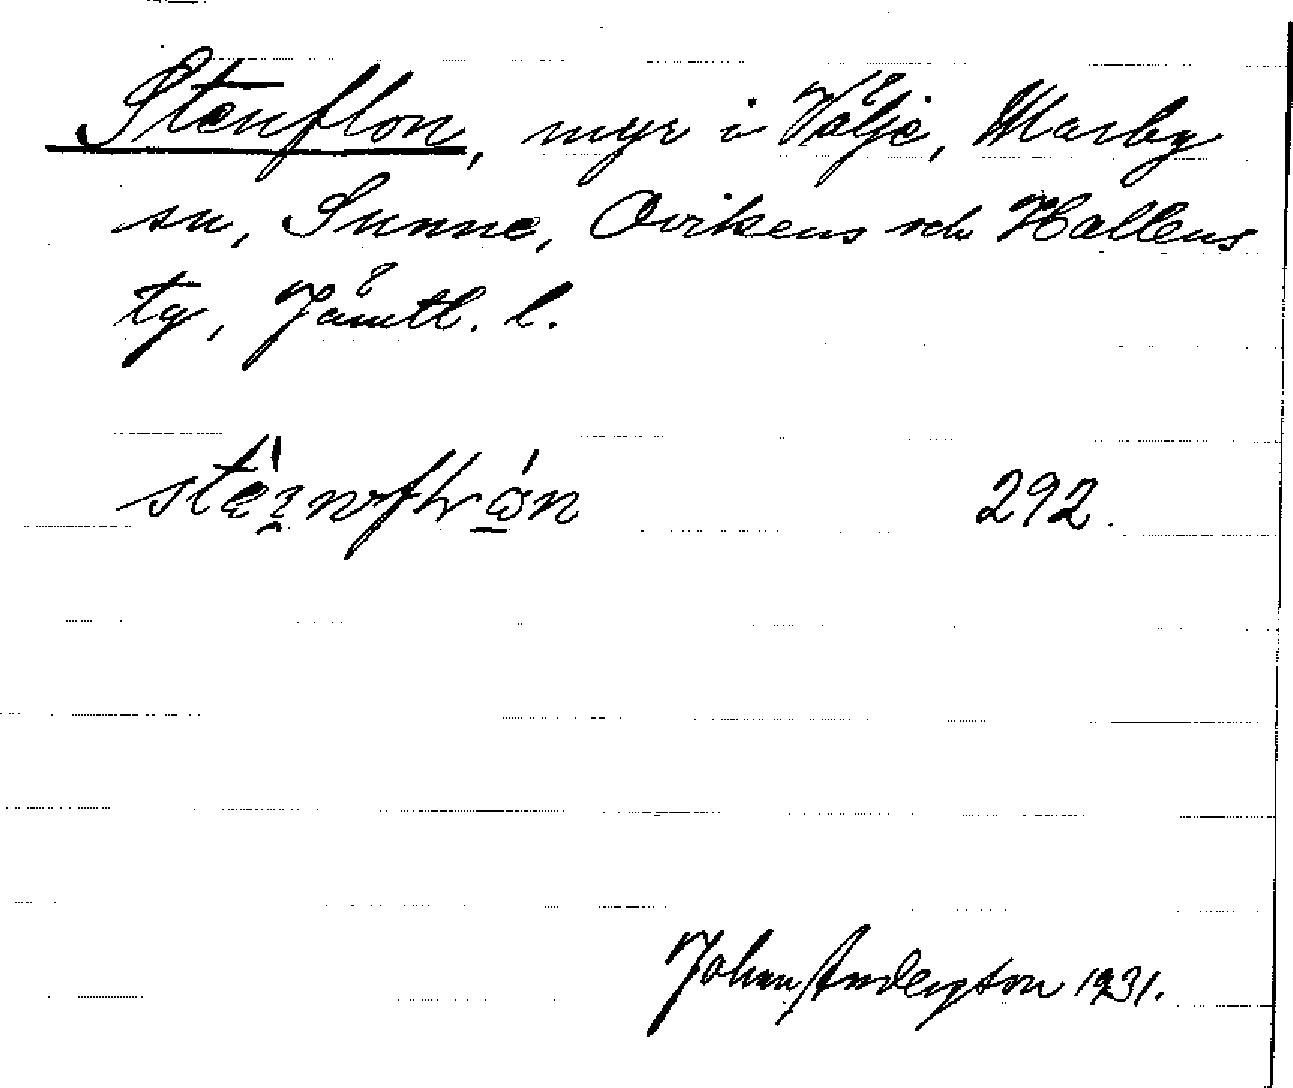 Stenflon, myr i Välje, Marby
sn, Sunne, Ovikens och Hallens
tg, Jämtl. l.
292.
Johan Anderson 1931.